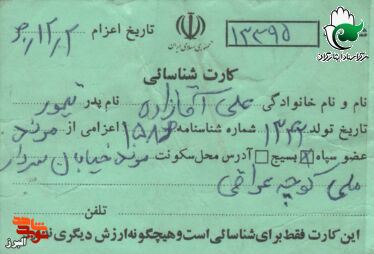 شماره ۱۳۳۹۵
جمهوری اسلامی ایران
تاریخ اعزام
کارت شناسائی
نام و نام خانوادگی علی آقازاده نام پدر تیمور
تاریخ تولد ۱۳۴۲ شماره شناسنامه اعزامی از مرند
عضو سپاه بسیج آدرس محل سکونت مرند خیابان سردار
ملی کوچه عراقی
تلفن
این کارت فقط برای شناسائی است و هیچگونه ارزش دیگری
مرکز اسناد ایثارگران
البرز